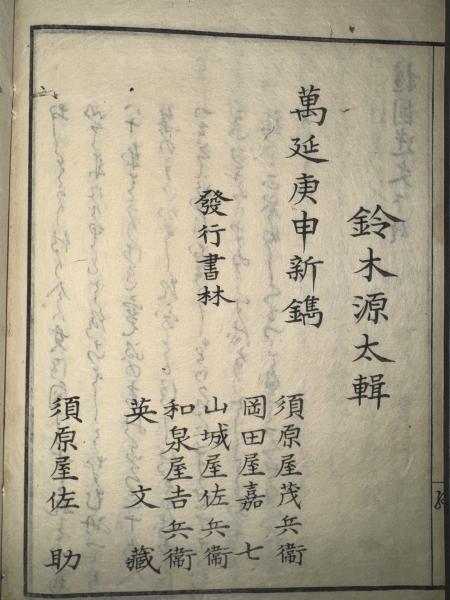 鈴木源太輯
萬延庚申新鐫
發行書林
須原屋茂兵衞
岡田屋嘉七
山城屋佐兵衞
和泉屋吉兵衞
英文藏
須原屋佐助